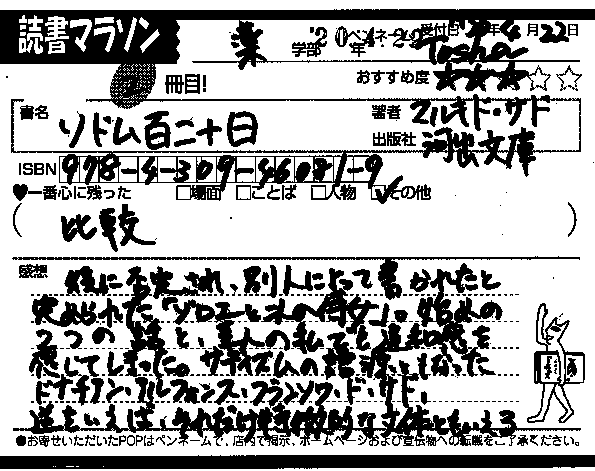 読書マラソン
薬 学部 年 ペンネーム 受付日 '20年4月22日
'20.4.22
Tosha
冊目!
おすすめ度 ★★★☆☆
書名 ソドム百二十日
著者 マルキド・サド
出版社 河出文庫
ISBN 978-4-309-46081-9
♥一番心に残った □場面 □ことば □人物 ☑その他
( 比較 )
感想
後に否定され、別人によって書かれたと
定められた「ゾロエと二人の侍女」。始めの
2つの話と、素人の私でも違和感を
感じてしまった。サディズムの語源ともなった
ドナチアン・アルフォンス・フランソワ・ド・サド。
逆をいえば、それだけ特徴的な文体ともいえる
●お寄せいただいたPOPはペンネームで、店内で掲示、ホームページおよび宣伝物への転載をご了承ください。